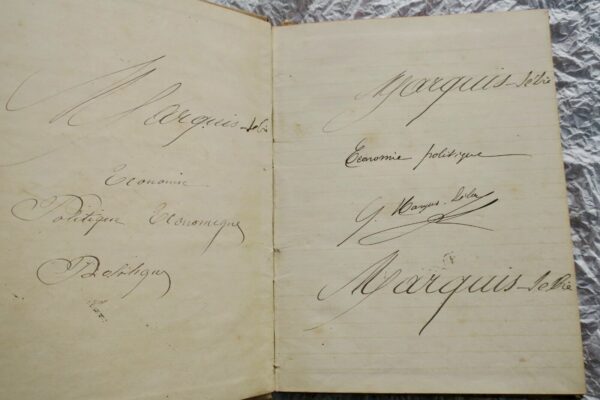 Marquis
Economie
Politique Economique
Politique
Marquis
Economie politique
G Marquis
Marquis